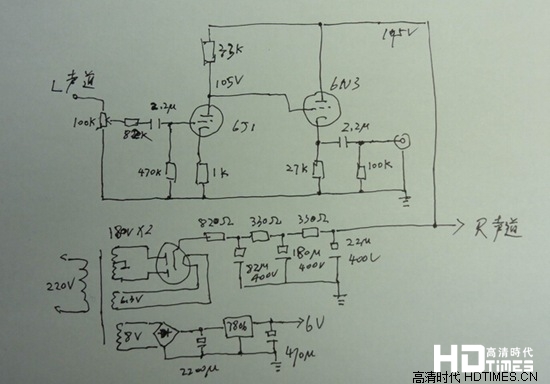 195V
33K
L声道
105V
6N3
100K
2.2μ
82K
6J1
2.2μ
470K
1K
27K
100K
180V×2
820Ω
330Ω
330Ω
R声道
220V
82μ
400V
180μ
400V
22μ
400V
6.3V
8V
7806
6V
2200μ
470μ
高清時代
HDTIMES
高清時代 HDTIMES.CN